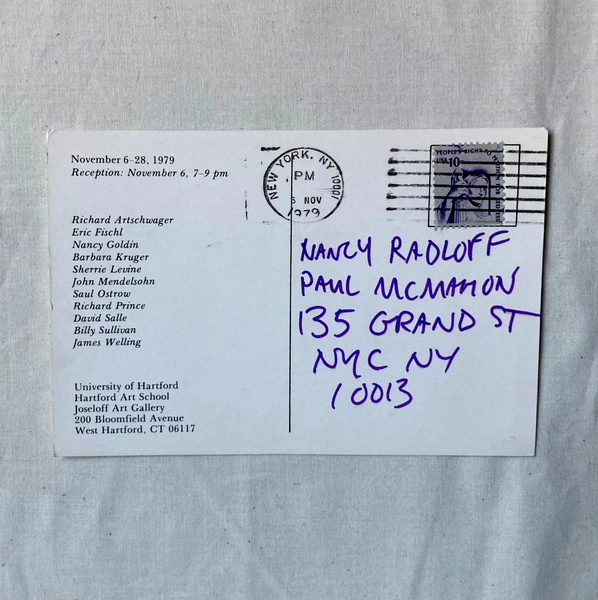 November 6-28, 1979
Reception: November 6, 7-9 pm
Richard Artschwager
Eric Fischl
Nancy Goldin
Barbara Kruger
Sherrie Levine
John Mendelsohn
Saul Ostrow
Richard Prince
David Salle
Billy Sullivan
James Welling
University of Hartford
Hartford Art School
Joseloff Art Gallery
200 Bloomfield Avenue
West Hartford, CT 06117
NEW YORK, NY 10001
PM
5 NOV
1979
PEOPLE'S RIGHT TO PETITION FOR REDRESS
USA 10c
NANCY RADLOFF
PAUL MCMAHON
135 GRAND ST
NYC NY
10013